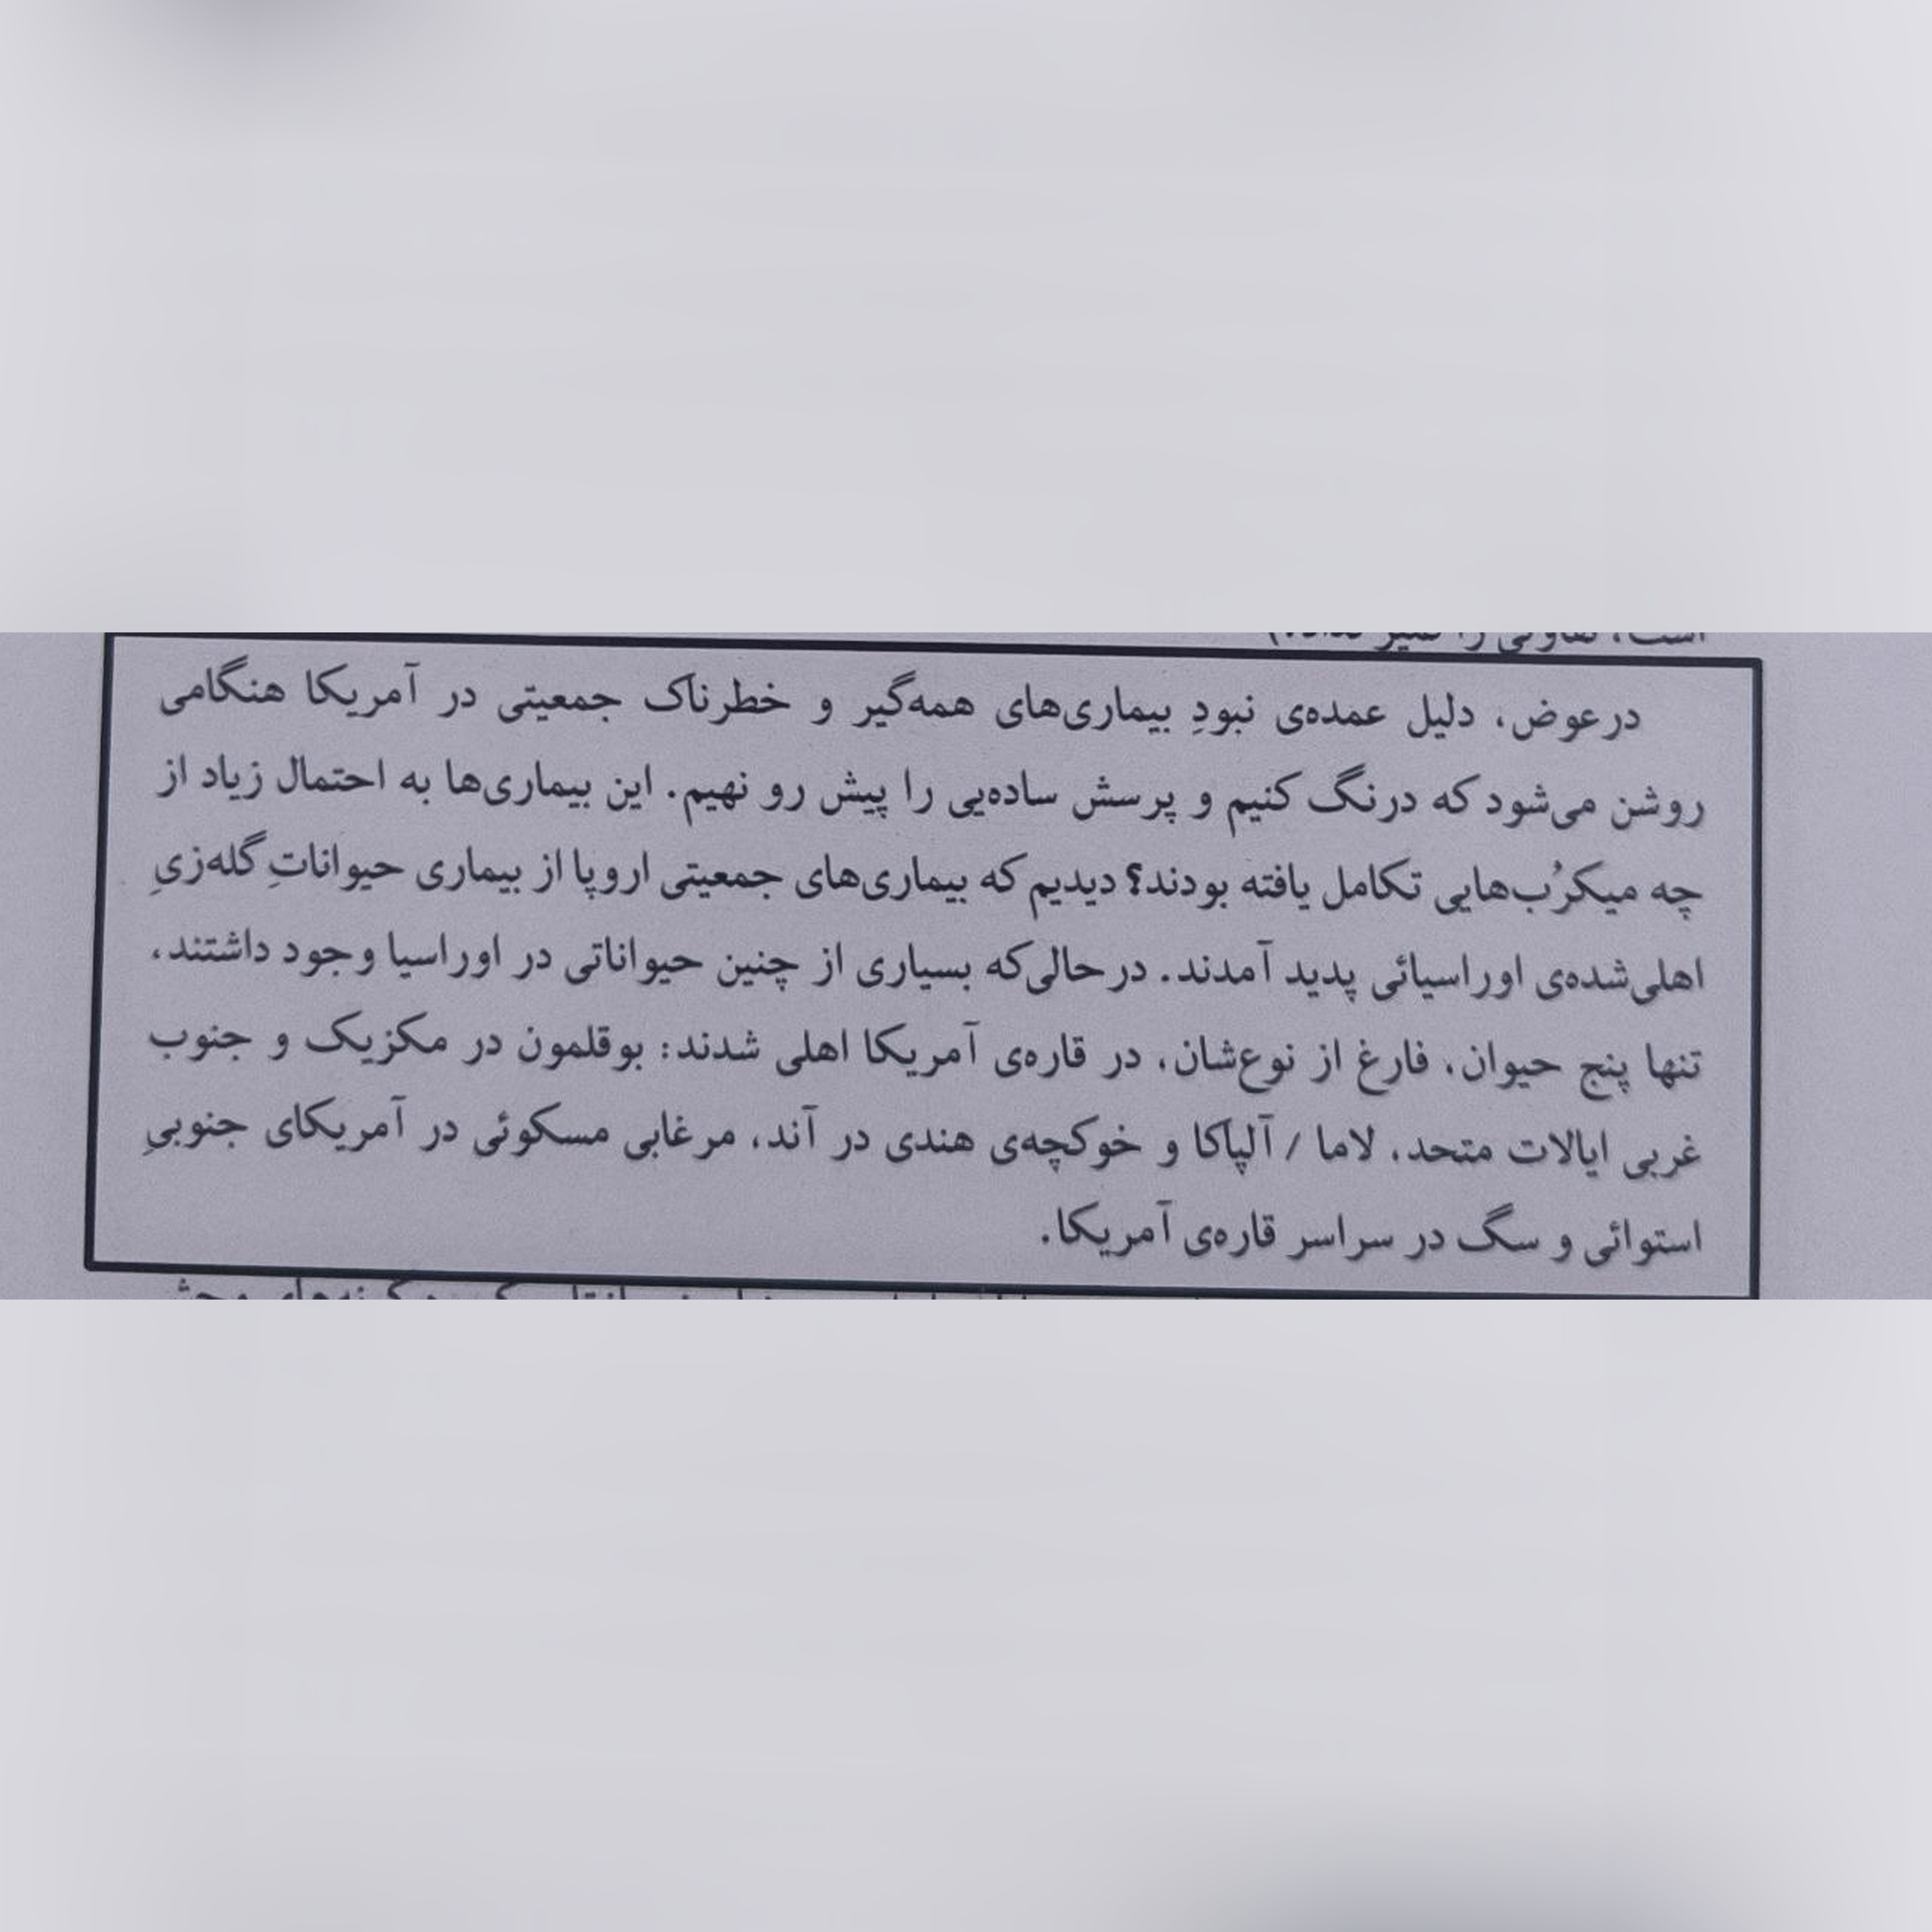 درعوض، دلیل عمده‌ی نبودِ بیماری‌های همه‌گیر و خطرناک جمعیتی در آمریکا هنگامی
روشن می‌شود که درنگ کنیم و پرسش ساده‌یی را پیش رو نهیم. این بیماری‌ها به احتمال زیاد از
چه میکرُب‌هایی تکامل یافته بودند؟ دیدیم که بیماری‌های جمعیتی اروپا از بیماری حیواناتِ گله‌زیِ
اهلی‌شده‌ی اوراسیائی پدید آمدند. درحالی‌که بسیاری از چنین حیواناتی در اوراسیا وجود داشتند،
تنها پنج حیوان، فارغ از نوع‌شان، در قاره‌ی آمریکا اهلی شدند: بوقلمون در مکزیک و جنوب
غربی ایالات متحد، لاما / آلپاکا و خوکچه‌ی هندی در آند، مرغابی مسکوئی در آمریکای جنوبیِ
استوائی و سگ در سراسر قاره‌ی آمریکا.